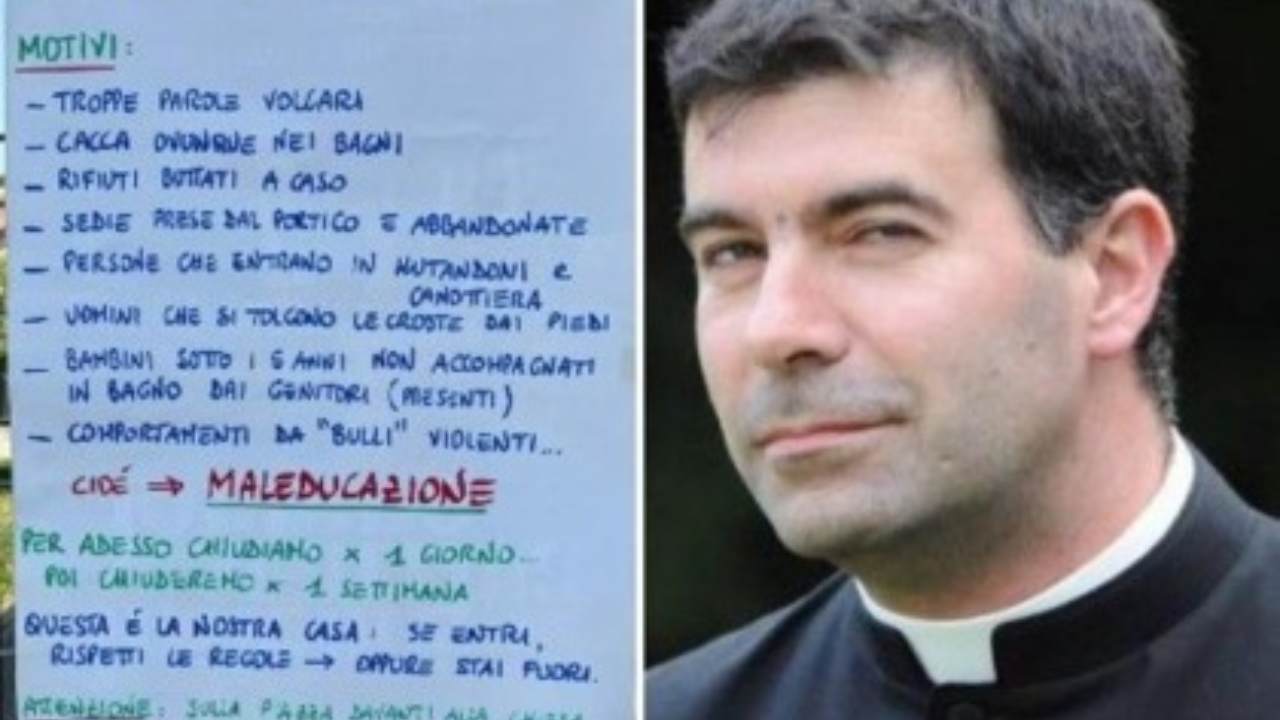 MOTIVI:
- TROPPE PAROLE VOLGARI
- CACCA OVUNQUE NEI BAGNI
- RIFIUTI BUTTATI A CASO
- SEDIE PRESE DAL PORTICO E ABBANDONATE
- PERSONE CHE ENTRANO IN MUTANDONI E
CANOTTIERA
- UOMINI CHE SI TOLGONO LE CROSTE DAI PIEDI
- BAMBINI SOTTO I 6 ANNI NON ACCOMPAGNATI
IN BAGNO DAI GENITORI (PRESENTI)
- COMPORTAMENTI DA "BULLI" VIOLENTI...
CIOÉ ⇒ MALEDUCAZIONE
PER ADESSO CHIUDIAMO x 1 GIORNO...
POI CHIUDEREMO x 1 SETTIMANA
QUESTA É LA NOSTRA CASA: SE ENTRI,
RISPETTI LE REGOLE → OPPURE STAI FUORI.
ATTENZIONE: SULLA PIAZZA DAVANTI ALLA CHIESA